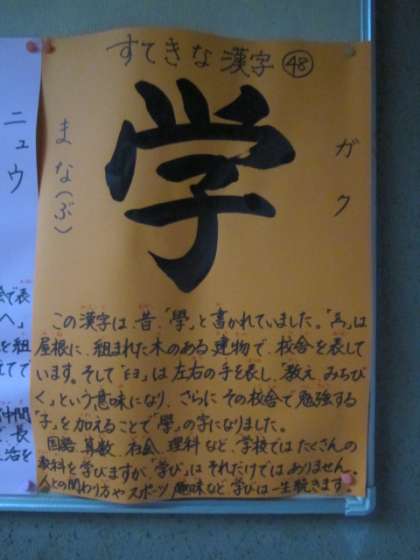 すてきな漢字 48
学
ガク
まな(ぶ)
この漢字は、昔、「學」と書かれていました。「は
屋根に、組まれた木のある建物で、校舎を表して
います。そして「」は左右の手を表し、「教え みちび
く」という意味になり、さらに その校舎で勉強する
「子」を加えることで「學」の字になりました。
国語、算数、社会、理科など、学校では たくさんの
教科を学びますが「学び」は それだけでは ありません。
人との関わり方や スポーツ、趣味など 学びは一生続きます。
ニュウ